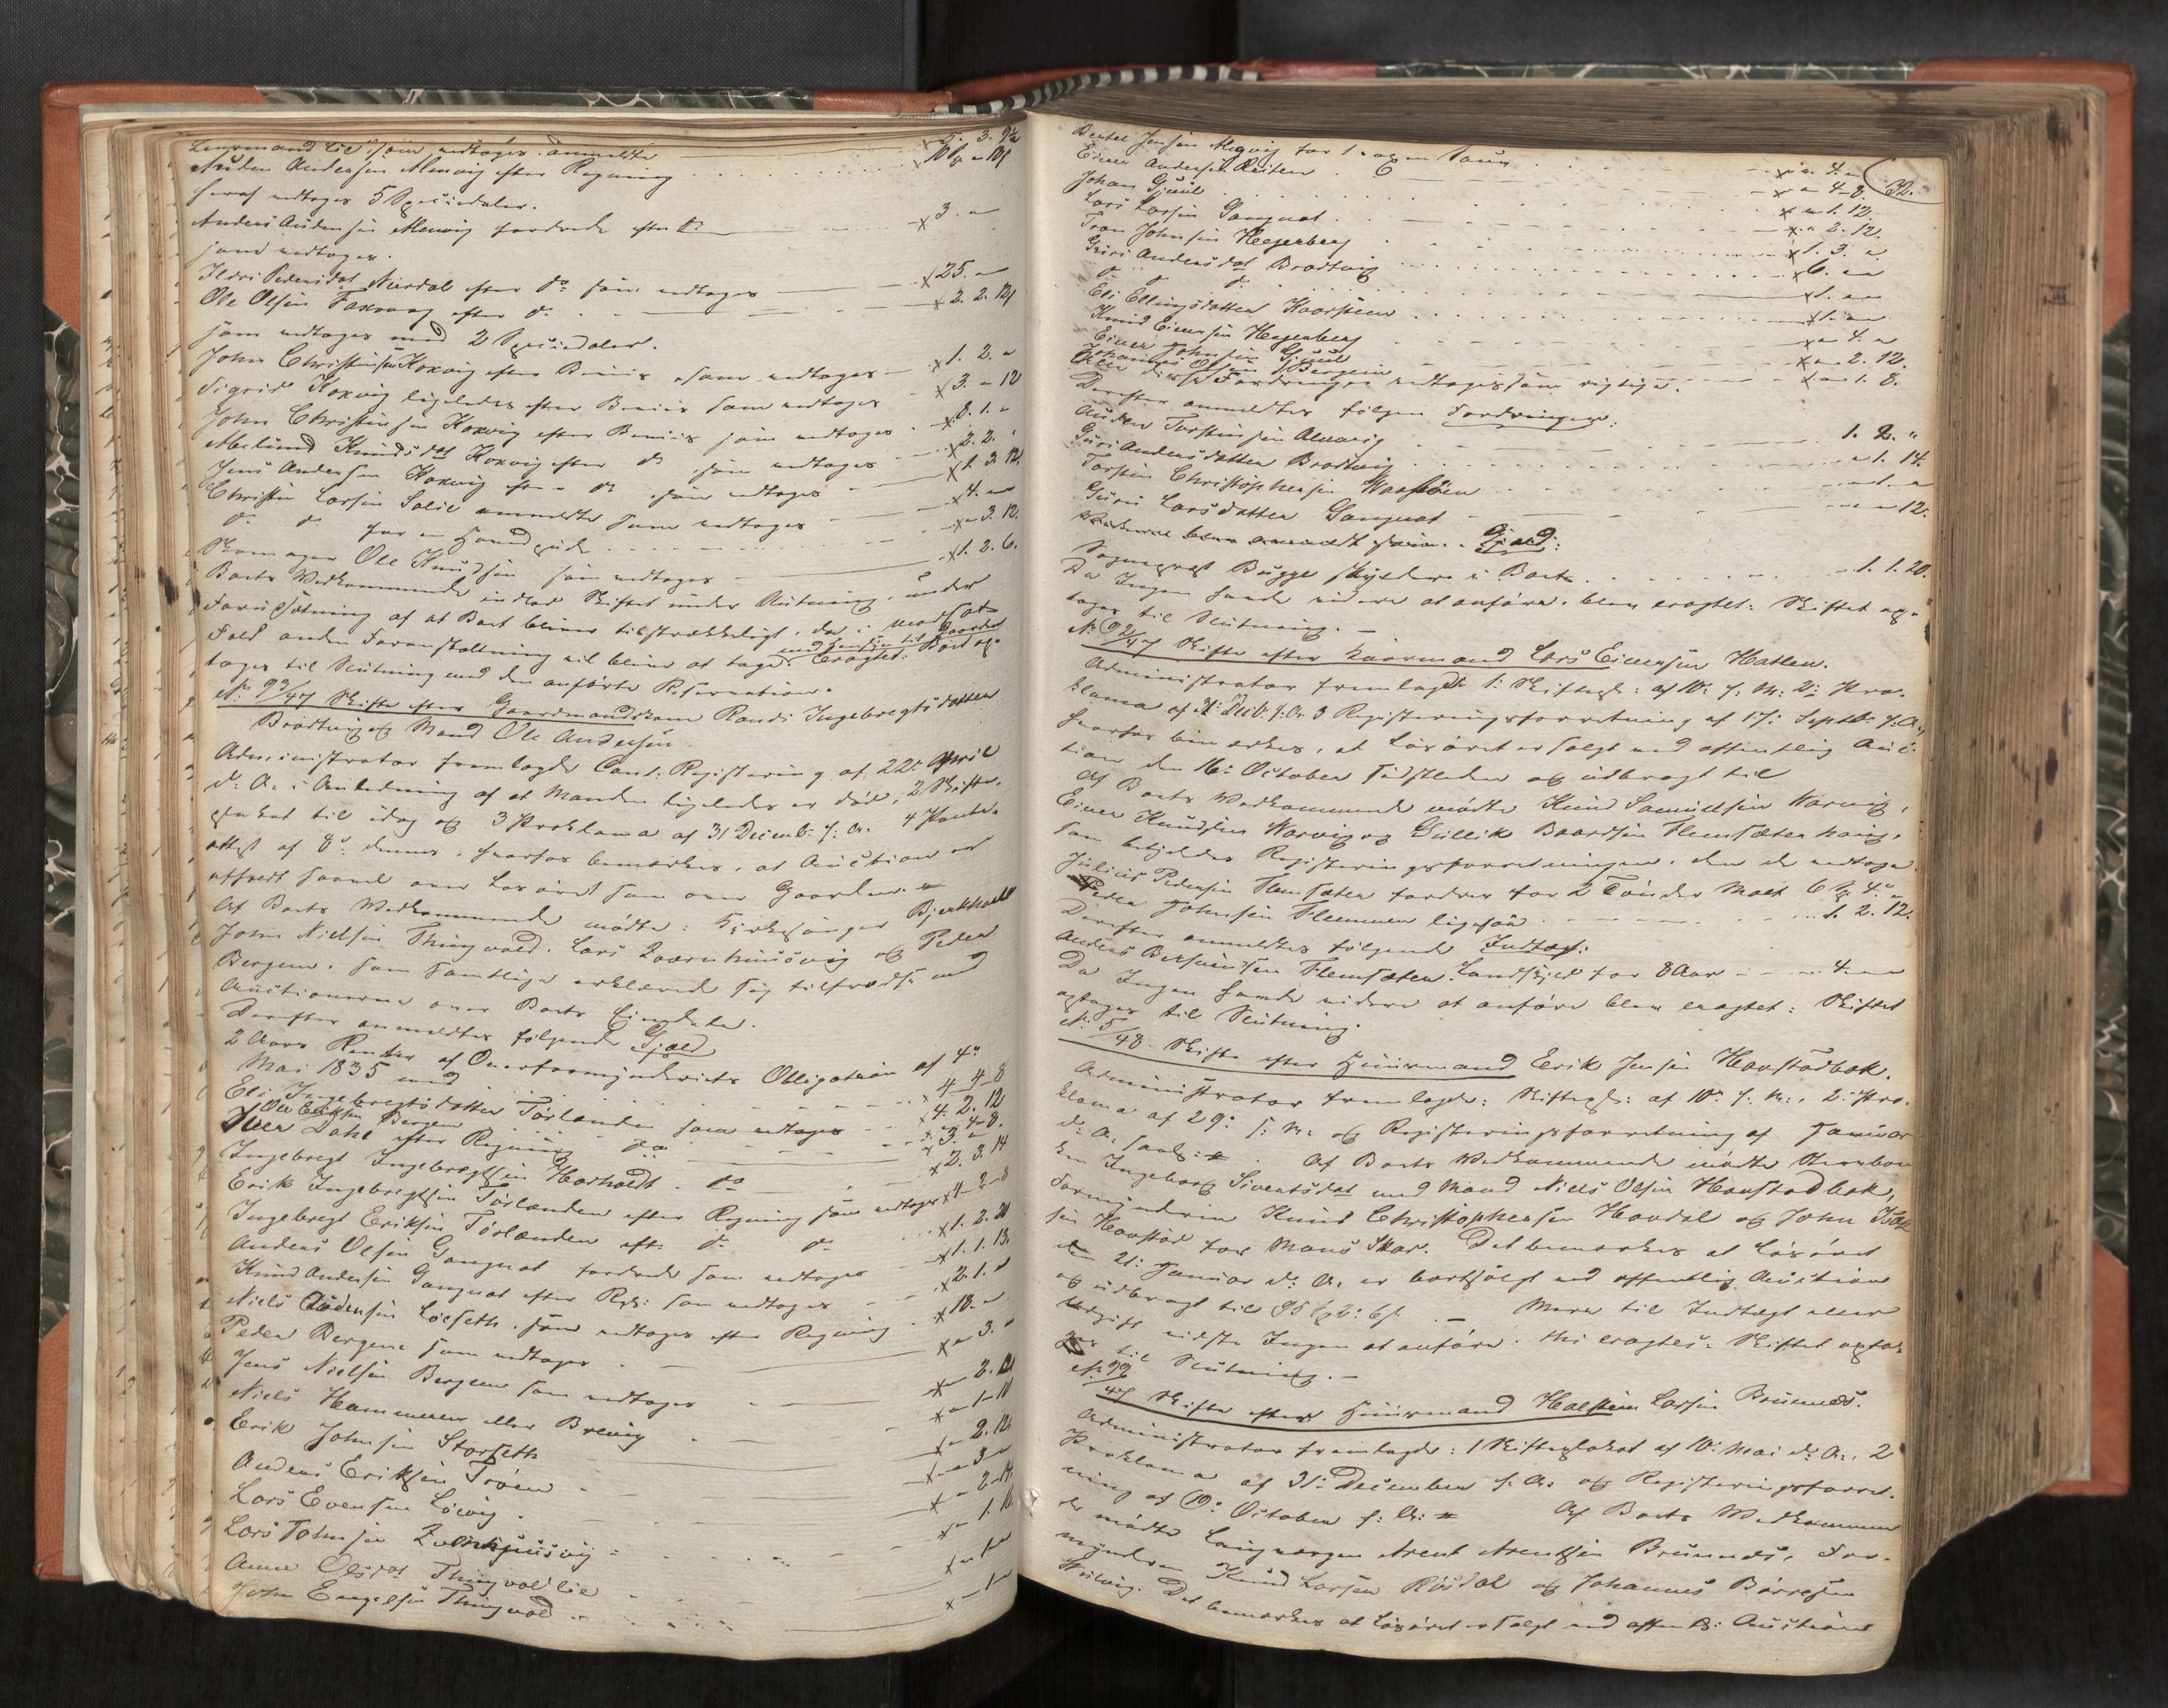 Leermand Lie som vedtoges anmeldte x 5. 3. 9½
Auden Andersen Alervig efter Regning x
heraf vedtoges 5 Speciedaler.
Anders Audensen Alervig fordrede efter do x 3. "
som vedtoges.
Ildri Pedersdat Nirdal efter do som vedtages x 25. "
Ole Olsen efter do x 2. 2. 12
som vedtoges med 2 Speciedaler.
John Christensen Koxvig efter Beviis som vedtoges x 1. 2. "
Sigrid Koxvig ligeledes efter Beviis som vedtoges x 3. " 12
John Christensen Koxvig efter Beviis som vedtoges x 8. 1. "
Knudsdat Koxvig efter do som vedtoges x 2. 2. "
Jens Andersen Koxvig efter do som vedtoges x 1. 3. 12.
Christen Larsen Solli anmeldte som vedtoges x 4. "
do do for en x " 3. 12.
Skomager Ole Knudsen som vedtoges x 1. 2. 6.
Boets Vedkommende indlod Skiftet under Slutning, under
Forudsætning af at Boet bliver tilstrækkeligt, da i modsat
Fald anden Foranstaltning vil blive at tage med Hensyn til Gaarden. Eragtet: Boet op-
tages til Slutning med den anførte Reservation.
No 93/47 Skifte efter Gaardmandskone Randi Ingebregtsdatter
Brødtvig og Mand Ole Andersen
Administrator fremlagde Cont: Registering af 22de April
d: A: i Anledning af at Manden ligeledes er død, 2 Skifte-
plakat til idag og 3 Proklama af 31 Decemb: f: A: 4 Pante-
attest af 8de dennes, hvorfor bemærkes, at Auction er
afholdt saavel over Løsøret som over Gaarden.
Af Boets Vedkommende mødte: Kirkesanger Bjerkholdt
John Nielsen Thingvold, Lars Qværnhuusvig og Peder
Bergem, som samtlige erklærede sig tilfreds med
Auctionerne over Boets Eiendele.
Derefter anmeldtes følgende Gjæld
2 Aars Renter af Overformynderiets Obligation af 4de
Mai 1835 med x 4 4 8
Eli Ingebregtsdatter Tørlanden som vedtoges x 4. 2. 12
Ole Eriksen Bergem x " 4 8.
Iver Dahl efter Regning do x 3. "
Ingebregt Ingebregtsen Harholdt do x 2. 3. 14
Erik Ingebregtsen Tørlanden efter Regning som vedtoges x 1 2 8
Ingebregt Eriksen Tørlanden eft: do do x 1. 2. 20
Anders Olsen Gangnat fordrede som vedtoges x 1. 1. 13.
Knud Andersen Gangnat efter Regn: som vedtoges x 2. 1. "
Niels Løseth, som vedtoges efter Regning x 18. "
Peder Bergem som vedtoges x " 3. "
Jens Nielsen Bergem som vedtoges x " 2. 12
Niels Hammeren eller Brevig x " 1 11
Erik Johnsen Storseth x " 2. 12
Anders Eriksen Trøen x " 3 "
Lars Evensen Løvig x " 2 14
Lars Johnsen Qvernhuusvig x " 1. 16
Anne Olsdat Thingvoldlie x " 1 "
John Engelsen Thingvold x " 1 "
32.
Bertel Jensen Alervig for 1 x " 4. "
Einer Andersen Reiten x " 4 8.
Johan Gjuul x " 1. 12.
Lars Larsen Gangnat x " 2. 12.
Tron Johnsen Hegerberg x 1. 3. "
Guri Andersdat Brødtvig x 6. "
do do x 1. "
Eli Ellingsdatter Kaarsteen x 1. "
Knud Einersen Hegerberg x " 4. "
Einer Johnsen Gjuul x " 2. 12.
Johannes Olsen Bergem x " 1. 8.
Alle disse Fordringer vedtoges som rigtige.
Derefter anmeldtes følgen Fordringer:
Auden Torstensen Alvarvig 1. 2. "
Guri Andersdatter Brødtvig " 1. 14.
Torsten Christophersen " 1. "
Guri Larsdatter Gangnat " " 12.
blev anmeldt som Gjæld:
Sogneprest Bugge skylder i Boet 1. 1. 20.
Da Ingen havde videre at anføre, blev eragtet: Skiftet op-
tages til Slutning. –
No 92/47 Skifte efter Kaarmand Lars Einersen Hatlen.
Administrator fremlagde 1: Skiftepl: af 10de f: M: 2: Pro-
klama af 31: Decb: f: A: 3 Registeringsforretning af 17: Septbr f: A:,
hvorfor bemærkes, at Løsøret er solgt ved offentlig Auc-
tion den 16: October sidstleden og udbragt til
Af Boets Vedkommende mødte Knud Samuelsen Norvig,
Einer Knudsen Norvig og Gullik Baardsen Flemsæterhaug,
som betjeldes Registeringsforretningen, den de vedtoge.
Julius Pedersen Flemsæter fordrer for 2 Tønder Malt 6 Sp 4 "
Peder Johnsen Flemmen ligesaa 1. 2. 12.
Derefter anmeldtes følgende Indtægt:
Anders Berhendsen Flemsæter Landskyld for 8 Aar 4 "
Da Ingen havde videre at anføre blev eragtet: Skiftet
optages til Slutning.
No 5/48 Skifte efter Huusmand Erik Jensen Hovstadbak.
Administrator fremlagde: Skiftepl: af 10de f: M:, 2: Pro-
klama af 29: f: M: og Registeringsforretning af Januar
d: A: Af Boets Vedkommende mødte Stervboe-
ken Ingeborg Sivertsdat med Mand Niels Olsen Hovstadbak,
Formynderen Knud Christophersen Hovdal og John
sen Hovstad for Mons Skar. Det bemærkes at Løsøret
den 21: Januar d: A: er bortsolgt ved offentlig Auction
og udbragt til 95 Sp 2: 6 s. – Mere til Indtægt eller
Udgift vidste Ingen at anføre. Thi eragtes: Skiftet opta-
ges til Slutning. –
No 99/47 Skifte efter Huusmand Halsten Larsen Brunnes.
Administrator fremlagde: 1 Skifteplakat af 10: Mai d: A:, 2
Proklama af 31: December f: A: og Registeringsforret-
ning af 19: October f: A: Af Boets Vedkommen-
de mødte Laugværgen Arent Arentsen Brunnes, For-
mynderen Knud Larsen Røsdal og Johannes Børresen
Det bemærkes at Løsøret er solgt ved offentl: Auction